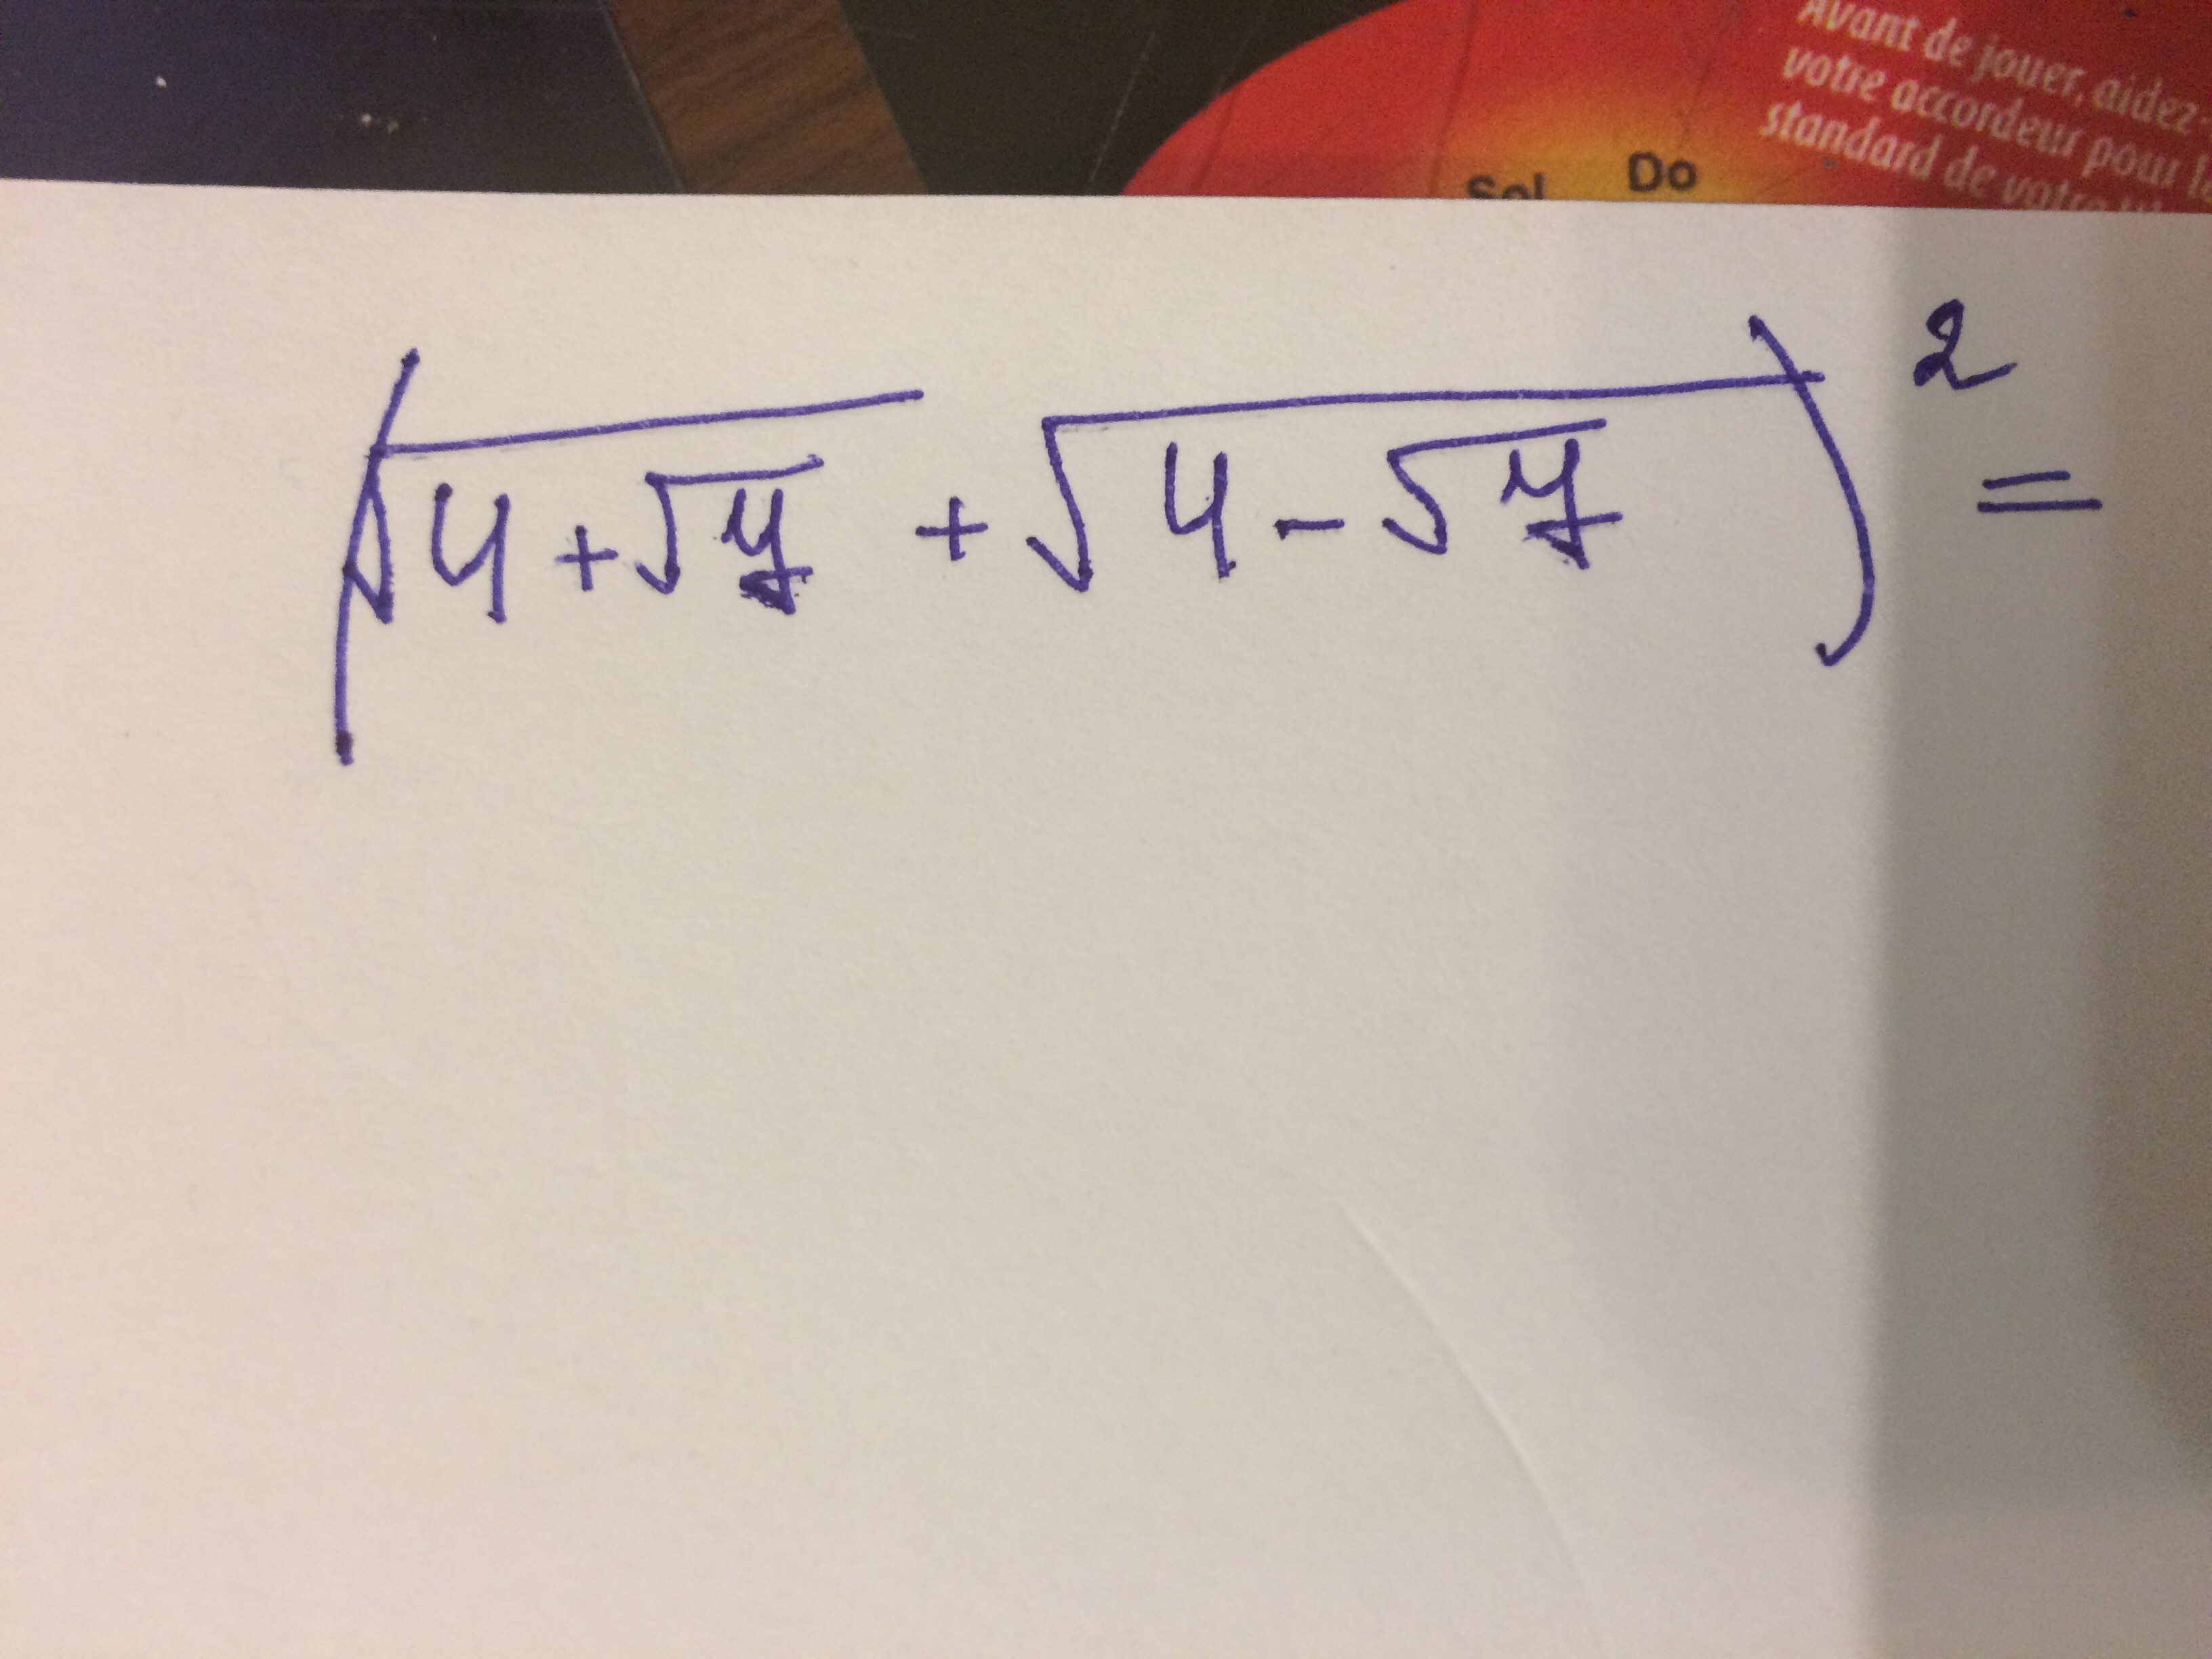 Avant de jouer, aidez-
votre accordeur pour
standard de votre
Sol Do
(√(4+√7) + √(4-√7))² =